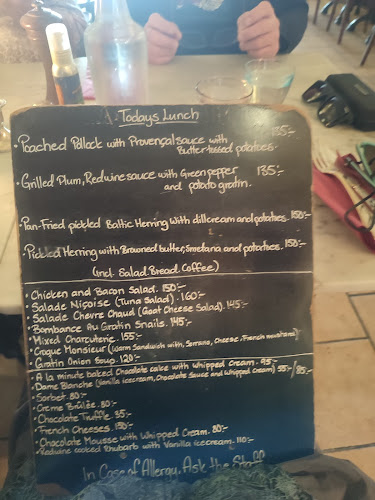 Todays Lunch
• Poached Pollock with Provençal sauce with 135:-
Butter-tossed potatoes.
• Grilled Plum, Redwine sauce with Green pepper 135:-
and potato gratin.
• Pan-Fried pickled Baltic Herring with dillcream and potatoes. 150:-
• Pickled Herring with Browned butter, Smetana and potatoes. 150:-
(incl. Salad. Bread. Coffee)
• Chicken and Bacon Salad. 150:-
• Salade Niçoise (Tuna Salad). 160:-
• Salade Chevre Chaud (Goat Cheese Salad). 145:-
• Bombance Au Gratin Snails. 145:-
• Mixed Charcuterie. 155:-
• Croque Monsieur (Warm Sandwich with, Serrano, Cheese, French mustard)
• Gratin Onion Soup. 120:-
• A la minute baked Chocolate cake with Whipped Cream. 95:-
• Dame Blanche (Vanilla icecream, Chocolate Sauce and Whipped Cream) 55:-/85:-
• Sorbet. 80:-
• Creme Brûlée. 80:-
• Chocolate Truffle. 35:-
• French Cheeses. 130:-
• Chocolate Mousse with Whipped Cream. 80:-
• Redwine cooked Rhubarb with Vanilla icecream. 110:-
In Case of Allergy, Ask the Staff